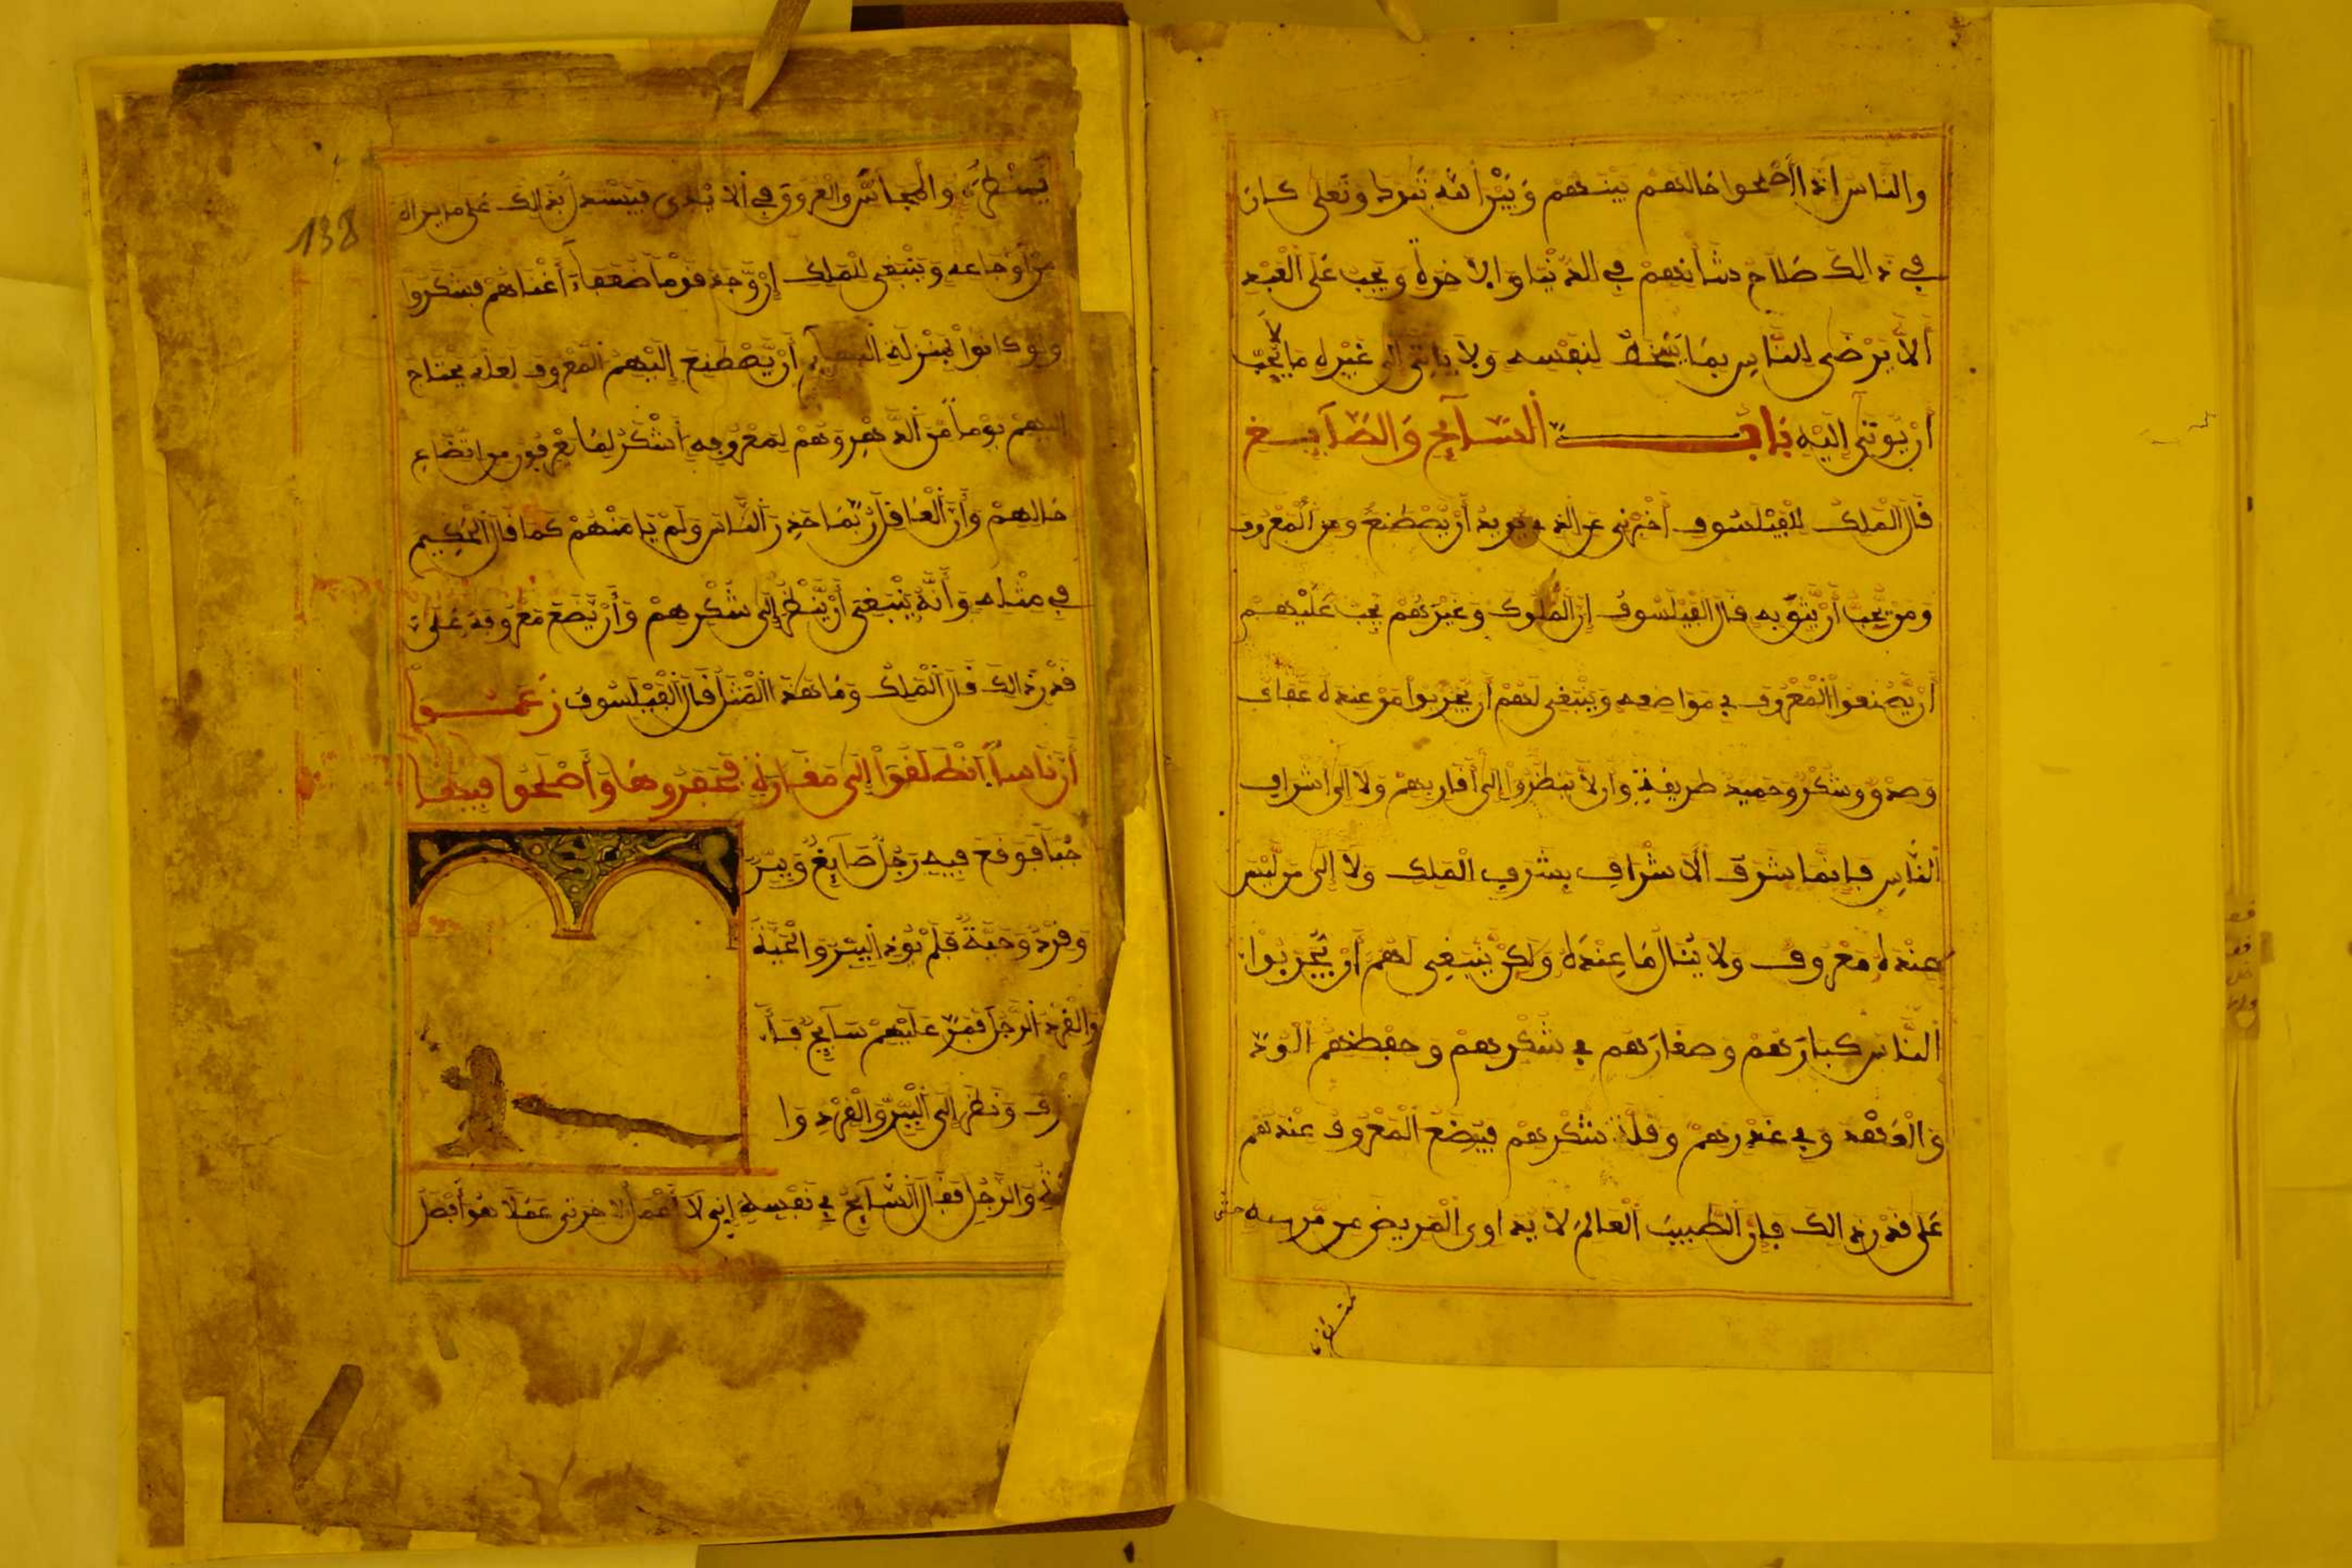 والناس اذا اصلحوا حالتهم بينهم وبين الله تبرك وتعلى كان
في ذالك صلاح شأنهم في الدنيا والاخرة ويجب على العبد
ألا يرضى للناس بما يسخط لنفسه ولا ياتي إلى غيره ما يحب
أن يوتى إليه باب السايح والصايغ
قال الملك للفيلسوف أخبرني عن الذي يريد أن يصطنع ومن المعروف
ومن يجب أن يثق به قال الفيلسوف إن الملوك وغيرهم يجب عليهم
أن يصنعوا المعروف في مواضعه وينبغي لهم أن يجربوا من عنده عفاف
وصدق وشكر وحميد طريقة وأن لا ينظروا إلى أقاربهم ولا إلى أشراف
الناس فإنما شرف الأشراف بشرف الملك ولا إلى من ليس
عنده معروف ولا ينال ما عنده ولكن ينبغي لهم أن يجربوا
الناس كبارهم وصغارهم في شكرهم وحفظهم الود
والعهد وفي غدرهم وقلة شكرهم فيضع المعروف عندهم
على قدر ذالك فإن الطبيب العالم لا يداوي المريض من مرضه حتى
138
ينظره والمجاس والعروق في الايدي فيستدل بذالك على ما يراه
من أوجاعه وينبغي للملك إن وجد قوما ضعفاء أغناهم فشكروا
ولو كانوا بمنزلة البهايم أن يصطنع إليهم المعروف لعله يحتاج
إليهم يوما من الدهر وهم لمعروفه أشكر لما يعرفون من اتضاع
حالهم وأن العاقل ربما حذر الناس ولم يامنهم كما قال الحكيم
في مثله وأنه ينبغي أن ينظر إلى شكرهم وأن يضع معروفه على
قدر ذالك قال الملك وما هذا المثل قال الفيلسوف زعموا
أن ناسا انطلقوا إلى مغارة فحفروها وأصلحوا فيها
جبا فوقع فيه رجل صايغ وببر
وقرد وحية فلم يوذ الببر والحية
والقرد الرجل فمر عليهم سايح فأ
رف ونظر إلى الببر والقرد وا
والرجل فقال السايح في نفسه إني لا أعمل لاخرتي عملا هو أفضل